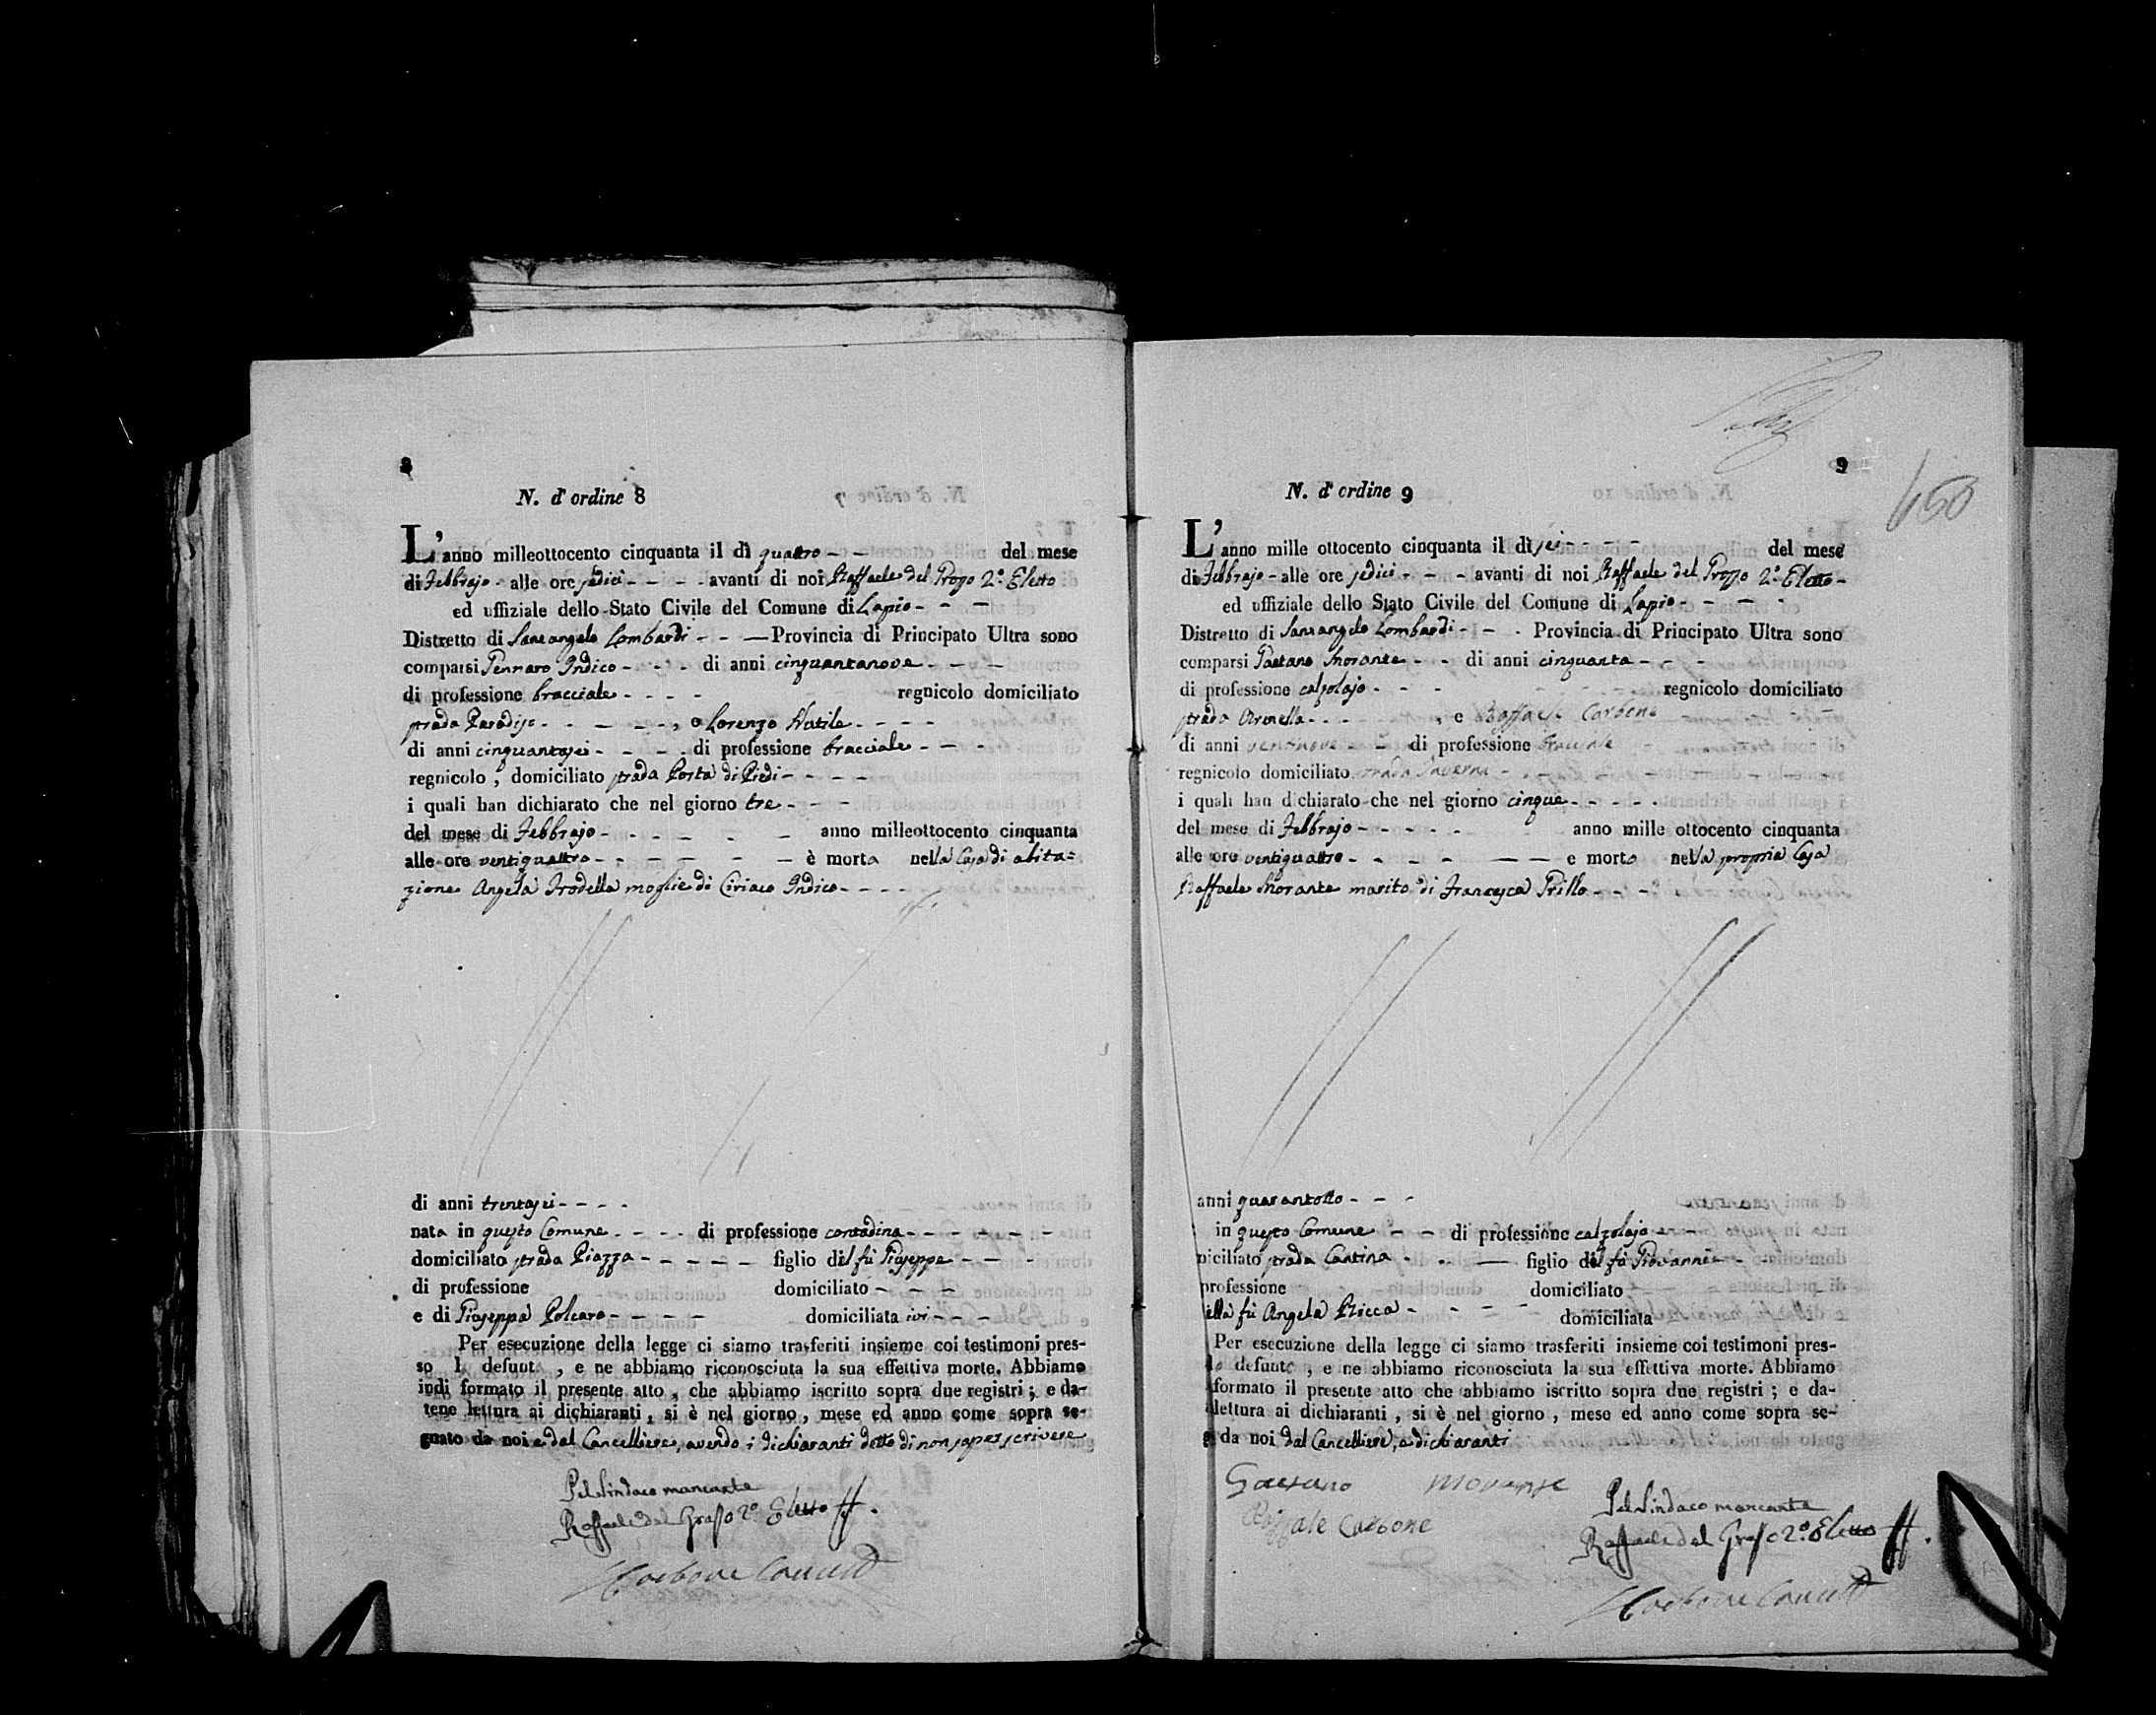 8
N. d'ordine 8
L'anno milleottocento cinquanta il dì quattro del mese
di Febbrajo alle ore sedici avanti di noi Raffaele del Grosso 2.º Eletto
ed uffiziale dello Stato Civile del Comune di Lapio
Distretto di Santangelo Lombardi Provincia di Principato Ultra sono
comparsi Gennaro Indico di anni cinquantanove
di professione bracciale regnicolo domiciliato
strada Paradiso, e Lorenzo Nutile
di anni cinquantasei di professione bracciale
regnicolo, domiciliato strada Porta di Piedi
i quali han dichiarato che nel giorno tre
del mese di Febbrajo anno milleottocento cinquanta
alle ore ventiquattro è morta nella Casa di abita=
zione Angela Frodella moglie di Ciriaco Indico
di anni trentasei
nata in questo Comune di professione contadina
domiciliato strada Piazza figlio del fù Giuseppe
di professione domiciliato
e di Giuseppa Polcaro domiciliata ivi
Per esecuzione della legge ci siamo trasferiti insieme coi testimoni pres-
so l defunt, e ne abbiamo riconosciuta la sua effettiva morte. Abbiamo
indi formato il presente atto, che abbiamo iscritto sopra due registri; e da-
tene lettura ai dichiaranti, si è nel giorno, mese ed anno come sopra se-
gnato da noi e dal Cancelliere, avendo i dichiaranti detto di non saper scrivere
Pel Sindaco mancante
Raffaele del Grosso 2º Eletto
Carbone
9
650
N. d'ordine 9
L'anno mille ottocento cinquanta il dì sei del mese
di Febbrajo alle ore sedici avanti di noi Raffaele del Grosso 2.º Eletto
ed uffiziale dello Stato Civile del Comune di Lapio
Distretto di Santangelo Lombardi Provincia di Principato Ultra sono
comparsi Gaetano Morante di anni cinquanta
di professione calzolajo regnicolo domiciliato
strada Arenella, e Raffaele Carbone
di anni ventinove di professione bracciale
regnicolo domiciliato strada Taverna
i quali han dichiarato che nel giorno cinque
del mese di Febbrajo anno mille ottocento cinquanta
alle ore ventiquattro e morto nella propria Casa
Raffaele Morante marito di Francesca Grillo
anni quarantotto
in questo Comune di professione calzolajo
niciliato strada Cantina figlio del fù Giovanni
professione domiciliato
ella fù Angela Ricca domiciliata
Per esecuzione della legge ci siamo trasferiti insieme coi testimoni pres-
lo defunto, e ne abbiamo riconosciuta la sua effettiva morte. Abbiamo
formato il presente atto che abbiamo iscritto sopra due registri; e da-
lettura ai dichiaranti, si è nel giorno, mese ed anno come sopra se-
da noi dal Cancelliere, e dichiaranti
Gaetano Morante
Raffaele Carbone
Pel Sindaco mancante
Raffaele del Grosso 2º Eletto
Carbone